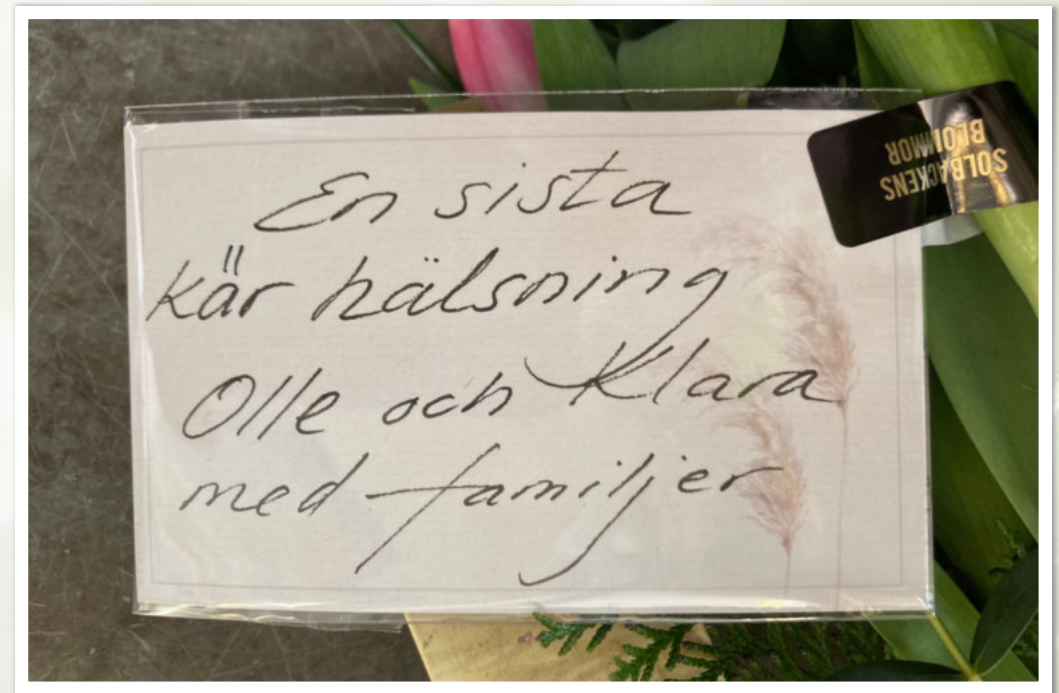 En sista
kär hälsning
Olle och Klara
med familjer
SOLBACKENS
BLOMMOR